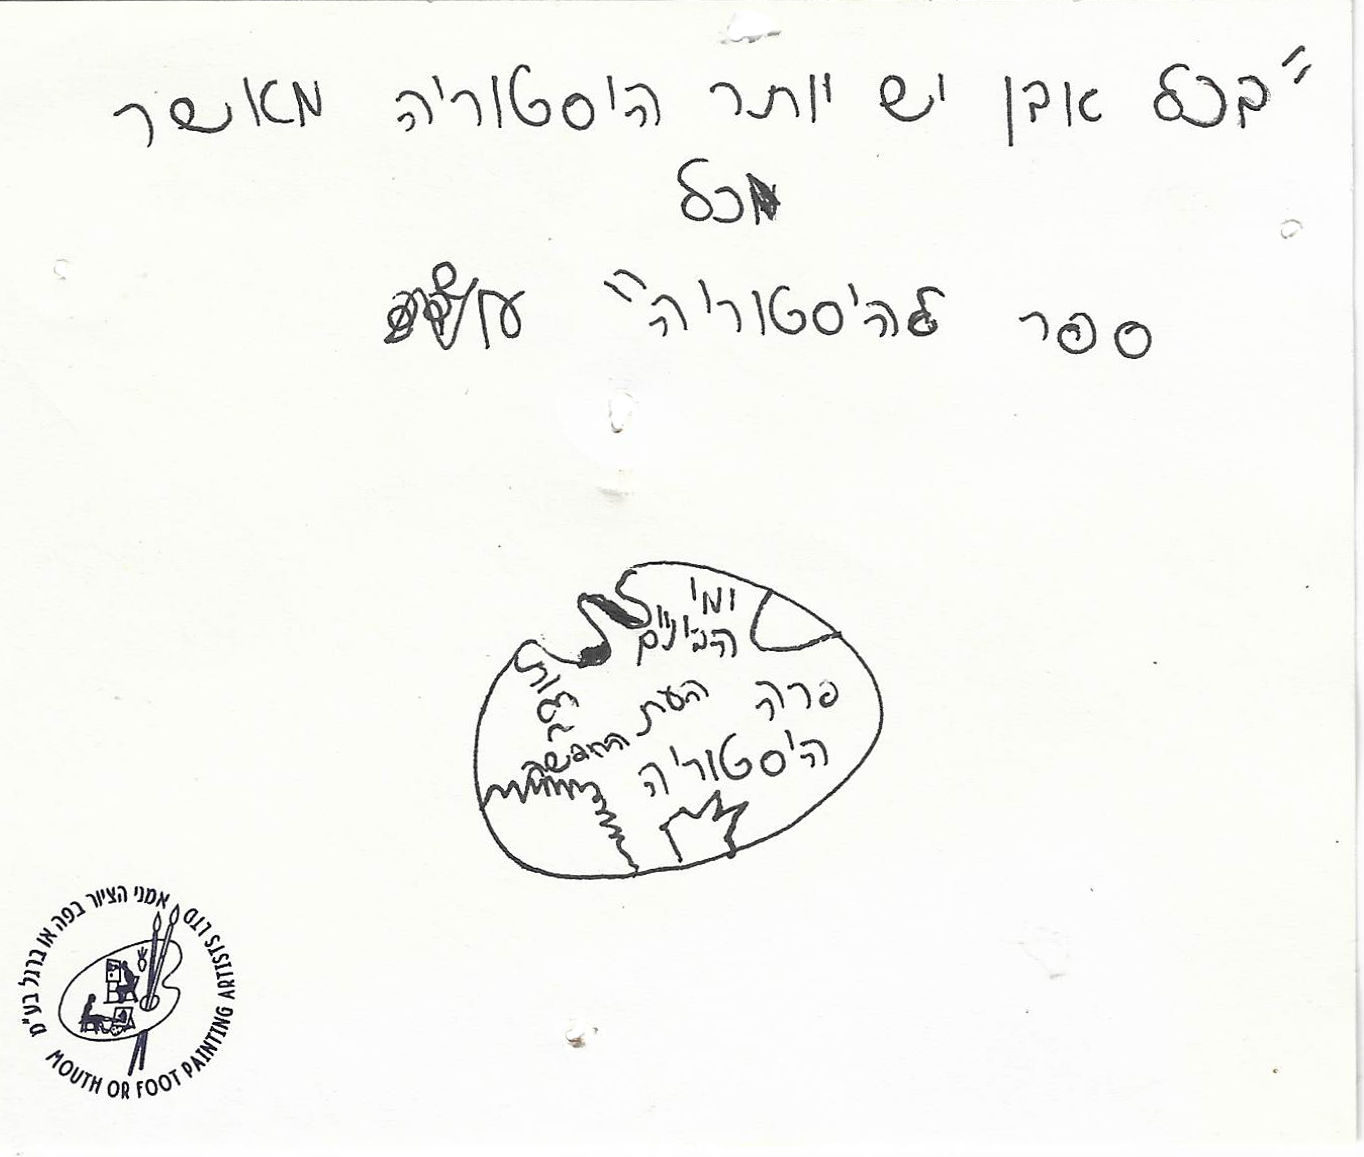 "בכל אבן יש יותר היסטוריה מאשר
בכל
ספר להיסטוריה"
ימי
הביניים
פרה
העת
החדשה
היסטוריה
אמני הציור בפה או ברגל בע"מ
MOUTH OR FOOT PAINTING ARTISTS LTD